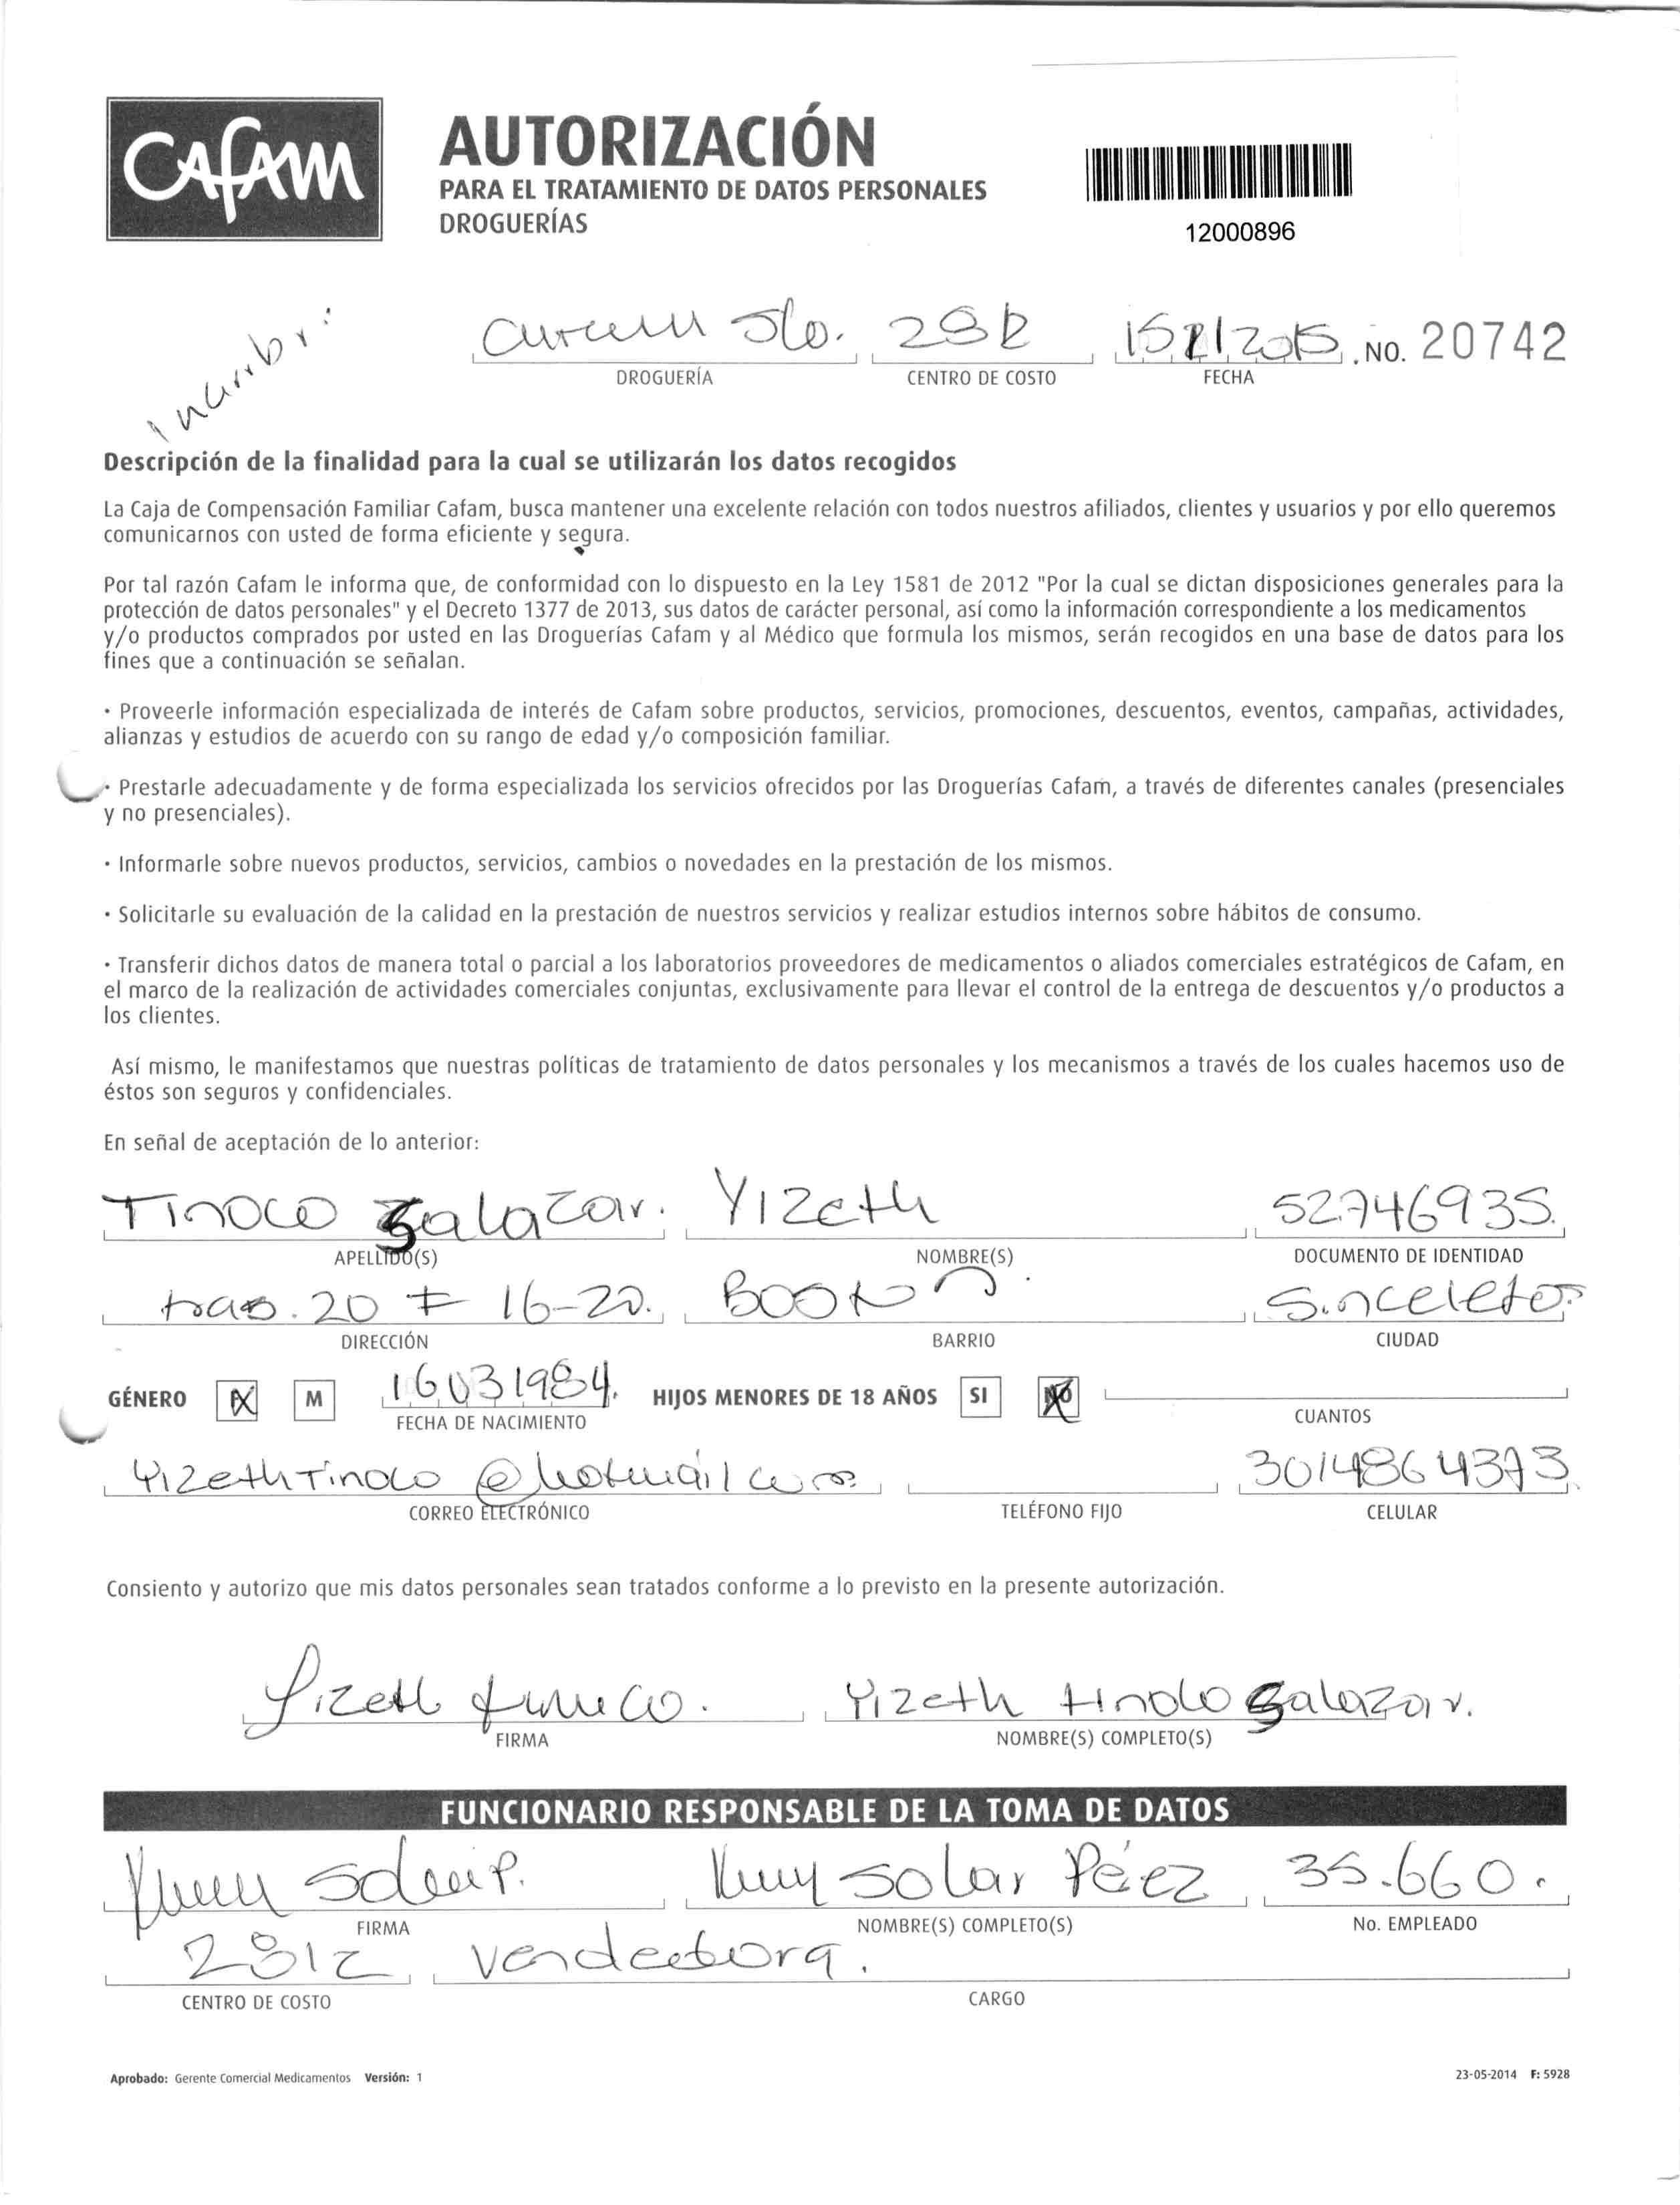 CAFAM
AUTORIZACIÓN
PARA EL TRATAMIENTO DE DATOS PERSONALES
DROGUERÍAS
12000896
NO. 20742
DROGUERÍA CENTRO DE COSTO FECHA
Descripción de la finalidad para la cual se utilizarán los datos recogidos
La Caja de Compensación Familiar Cafam, busca mantener una excelente relación con todos nuestros afiliados, clientes y usuarios y por ello queremos
comunicarnos con usted de forma eficiente y segura.
Por tal razón Cafam le informa que, de conformidad con lo dispuesto en la Ley 1581 de 2012 "Por la cual se dictan disposiciones generales para la
protección de datos personales" y el Decreto 1377 de 2013, sus datos de carácter personal, así como la información correspondiente a los medicamentos
y/o productos comprados por usted en las Droguerías Cafam y al Médico que formula los mismos, serán recogidos en una base de datos para los
fines que a continuación se señalan.
· Proveerle información especializada de interés de Cafam sobre productos, servicios, promociones, descuentos, eventos, campañas, actividades,
alianzas y estudios de acuerdo con su rango de edad y/o composición familiar.
· Prestarle adecuadamente y de forma especializada los servicios ofrecidos por las Droguerías Cafam, a través de diferentes canales (presenciales
y no presenciales).
· Informarle sobre nuevos productos, servicios, cambios o novedades en la prestación de los mismos.
· Solicitarle su evaluación de la calidad en la prestación de nuestros servicios y realizar estudios internos sobre hábitos de consumo.
· Transferir dichos datos de manera total o parcial a los laboratorios proveedores de medicamentos o aliados comerciales estratégicos de Cafam, en
el marco de la realización de actividades comerciales conjuntas, exclusivamente para llevar el control de la entrega de descuentos y/o productos a
los clientes.
Así mismo, le manifestamos que nuestras políticas de tratamiento de datos personales y los mecanismos a través de los cuales hacemos uso de
éstos son seguros y confidenciales.
En señal de aceptación de lo anterior:
Tinoco Salazar. Yizeth 52746935.
APELLIDO(S) NOMBRE(S) DOCUMENTO DE IDENTIDAD
16-20. Sincelejo.
DIRECCIÓN BARRIO CIUDAD
GÉNERO M 16031984. HIJOS MENORES DE 18 AÑOS SI NO
FECHA DE NACIMIENTO CUANTOS
YizethTinoco @hotmail com 3014864373
CORREO ELECTRÓNICO TELÉFONO FIJO CELULAR
Consiento y autorizo que mis datos personales sean tratados conforme a lo previsto en la presente autorización.
Yizeth tinoco. Yizeth tinoco Salazar.
FIRMA NOMBRE(S) COMPLETO(S)
FUNCIONARIO RESPONSABLE DE LA TOMA DE DATOS
Solar Pérez 35.660.
FIRMA NOMBRE(S) COMPLETO(S) No. EMPLEADO
vendedora.
CENTRO DE COSTO CARGO
Aprobado: Gerente Comercial Medicamentos Versión: 1 23-05-2014 F: 5928